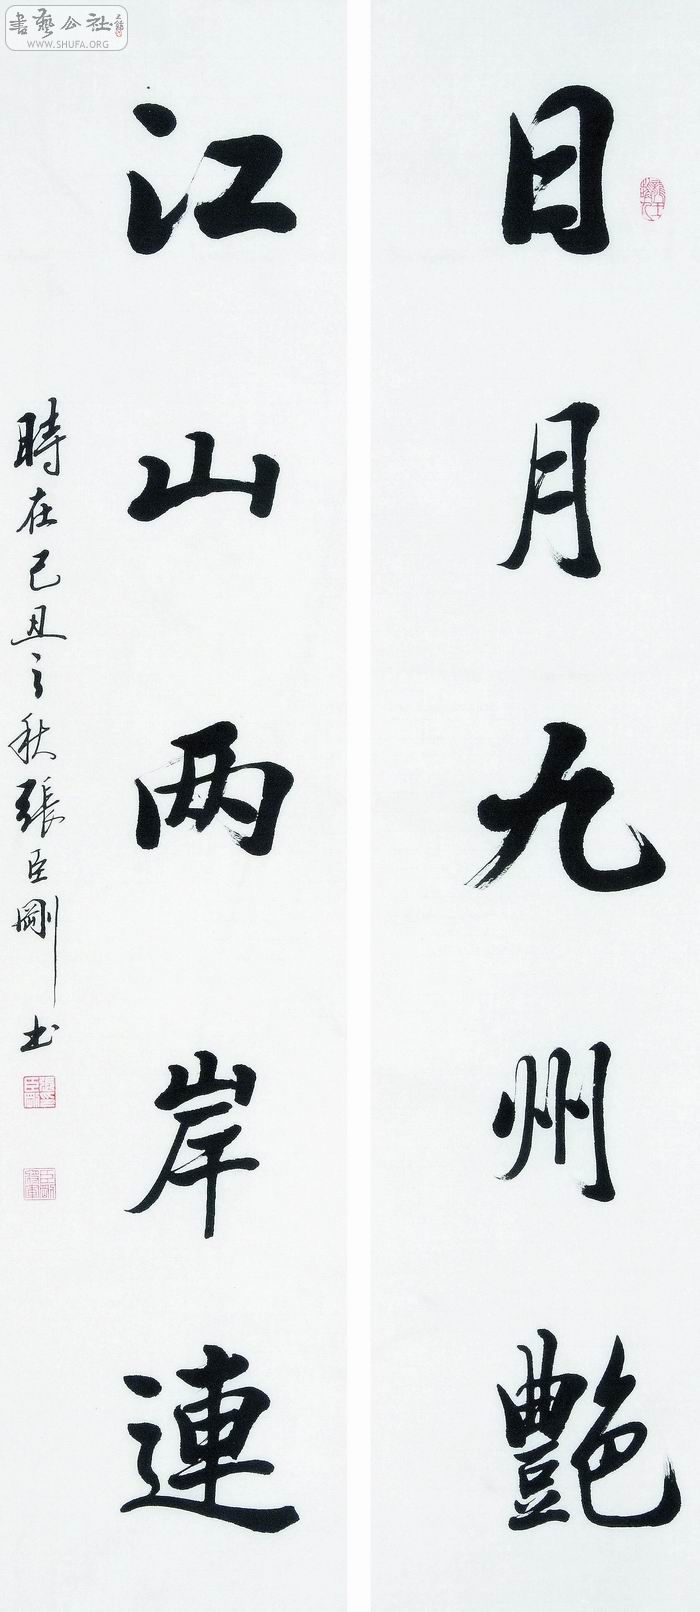 日月九州艷
江山两岸連
時在己丑之秋張臣剛书
書藝公社
WWW.SHUFA.ORG